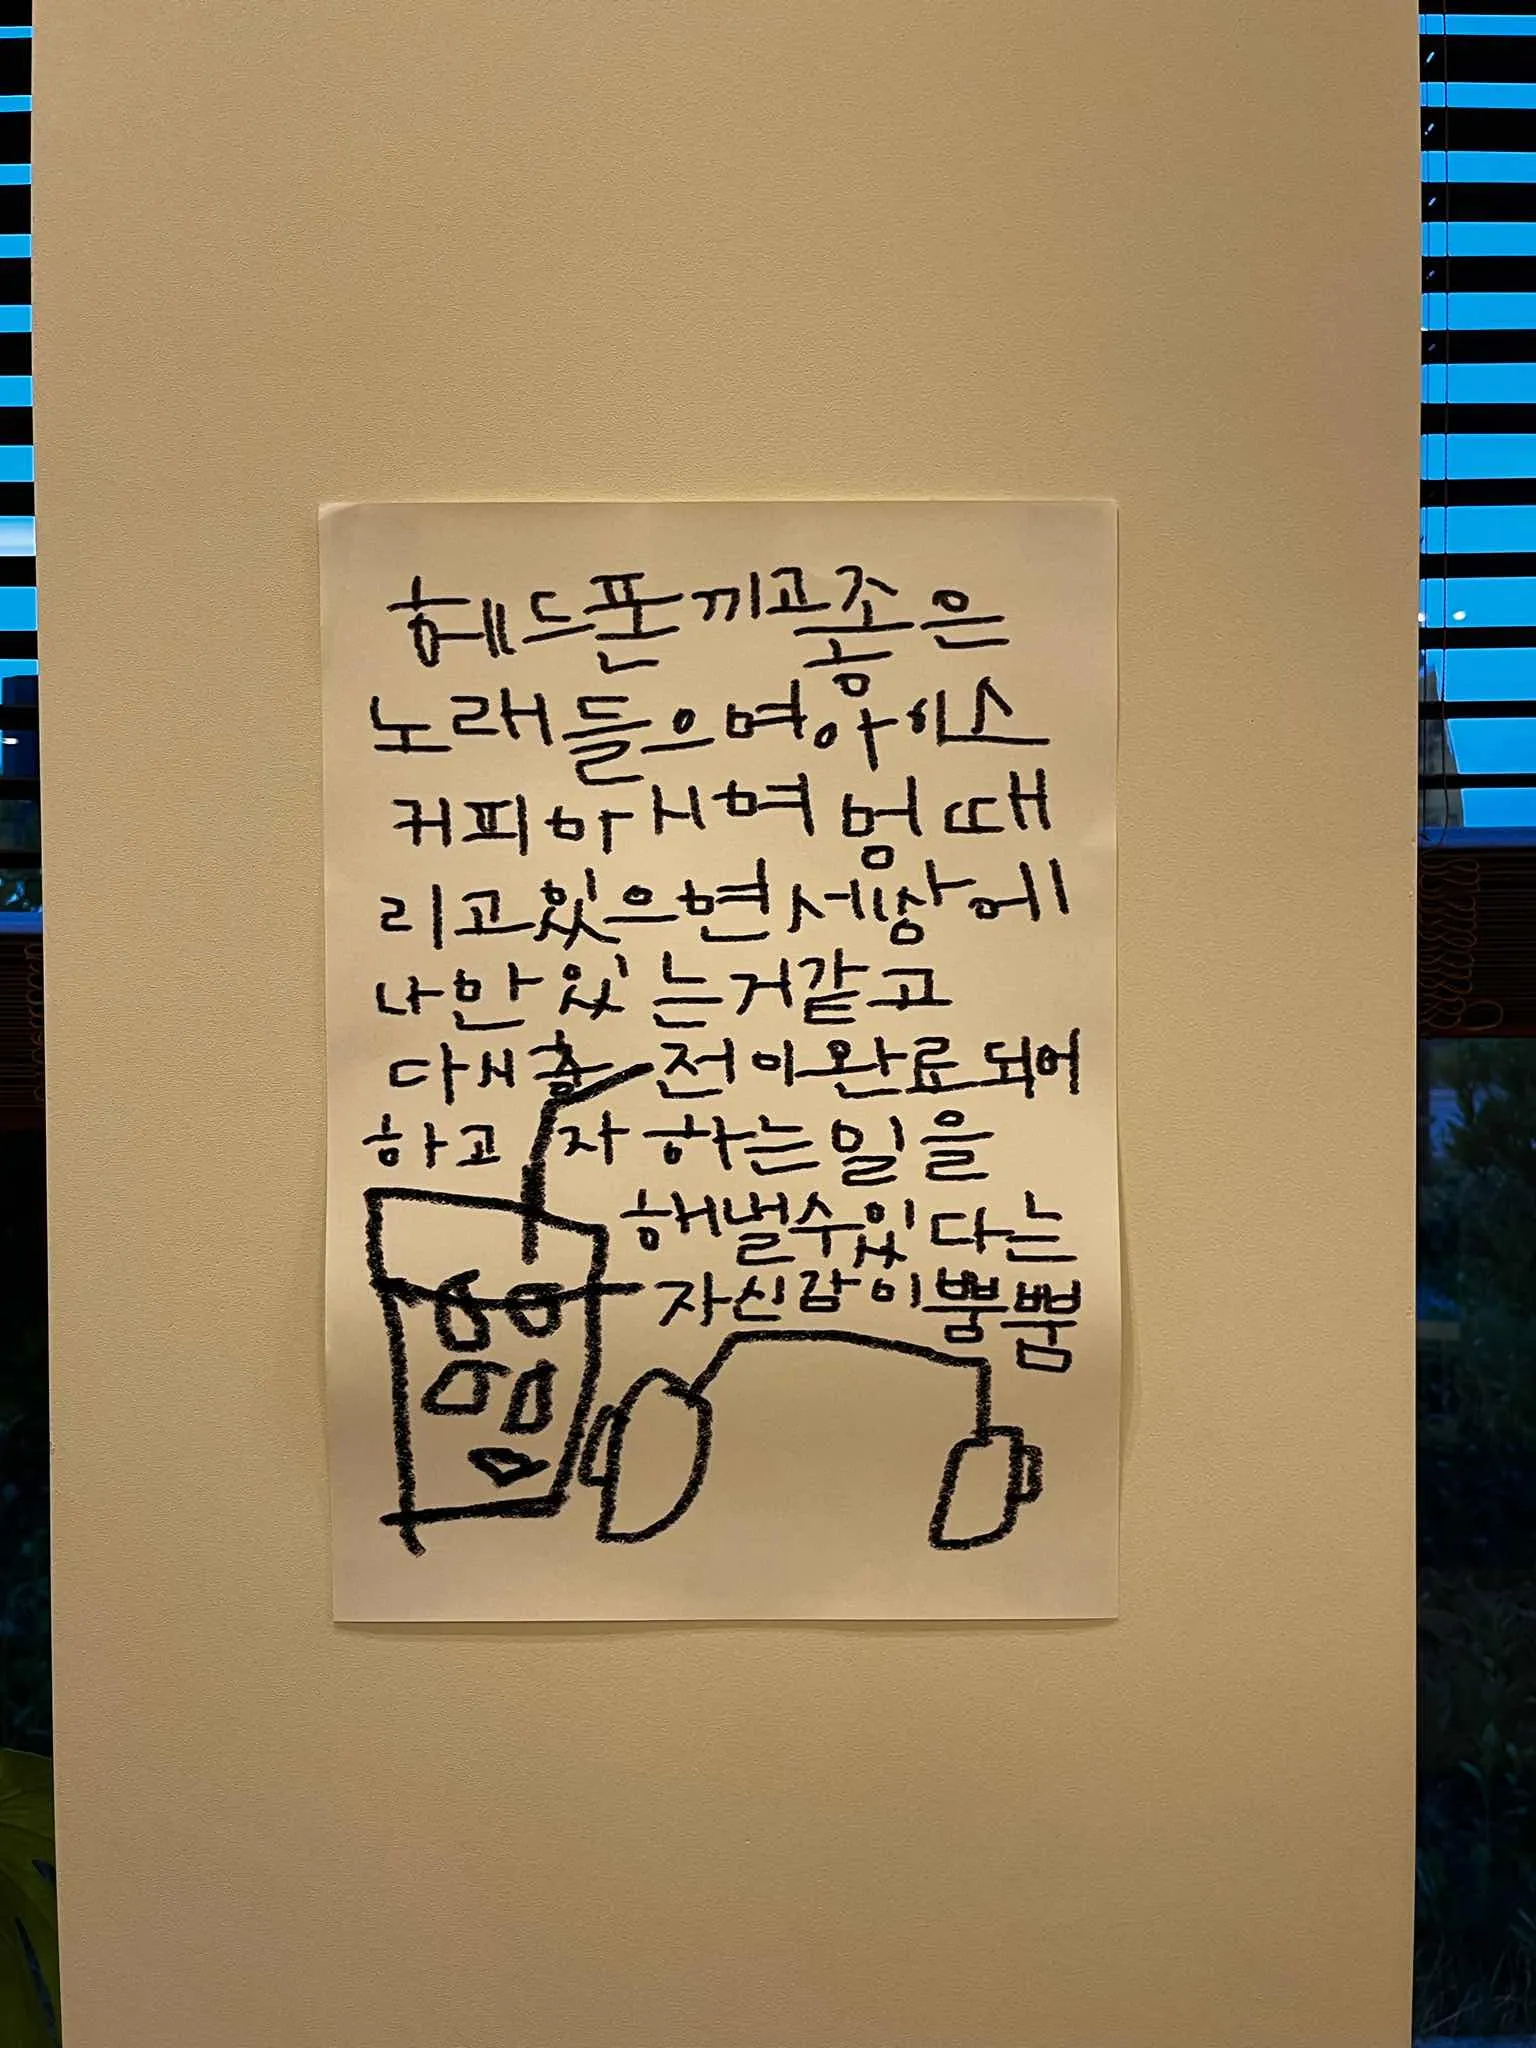 헤드폰끼고좋은
노래들으며아이스
커피마시며 멍때
리고있으면세상에
나만있는거같고
다시충전이완료되어
하고자하는일을
해낼수있다는
자신감이뿜뿜